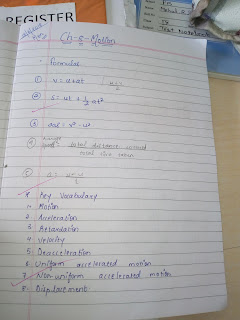 REGISTER
Ch-8-Motion
formulas
① v = u + at
② s = ut + 1/2 at²
③ 2as = v² - u²
④ Average speed = total distance covered / total time taken
⑤ a =
* Key Vocabulary
1. Motion
2 Acceleration
3 Retardation
4 Velocity
5 Deacceleration
6 Uniform accelerated motion
7 Non-uniform accelerated motion
8 Displacement
Test Notebook